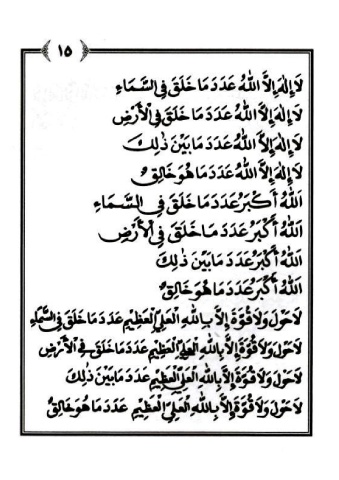 ١٥
لَا إِلٰهَ إِلَّا اللهُ عَدَدَ مَا خَلَقَ فِي السَّمَاءِ
لَا إِلٰهَ إِلَّا اللهُ عَدَدَ مَا خَلَقَ فِي الْأَرْضِ
لَا إِلٰهَ إِلَّا اللهُ عَدَدَ مَا بَيْنَ ذٰلِكَ
لَا إِلٰهَ إِلَّا اللهُ عَدَدَ مَا هُوَ خَالِقٌ
اَللهُ أَكْبَرُ عَدَدَ مَا خَلَقَ فِي السَّمَاءِ
اَللهُ أَكْبَرُ عَدَدَ مَا خَلَقَ فِي الْأَرْضِ
اَللهُ أَكْبَرُ عَدَدَ مَا بَيْنَ ذٰلِكَ
اَللهُ أَكْبَرُ عَدَدَ مَا هُوَ خَالِقٌ
لَا حَوْلَ وَلَا قُوَّةَ إِلَّا بِاللهِ الْعَلِيِّ الْعَظِيْمِ عَدَدَ مَا خَلَقَ فِي السَّمَاءِ
لَا حَوْلَ وَلَا قُوَّةَ إِلَّا بِاللهِ الْعَلِيِّ الْعَظِيْمِ عَدَدَ مَا خَلَقَ فِي الْأَرْضِ
لَا حَوْلَ وَلَا قُوَّةَ إِلَّا بِاللهِ الْعَلِيِّ الْعَظِيْمِ عَدَدَ مَا بَيْنَ ذٰلِكَ
لَا حَوْلَ وَلَا قُوَّةَ إِلَّا بِاللهِ الْعَلِيِّ الْعَظِيْمِ عَدَدَ مَا هُوَ خَالِقٌ